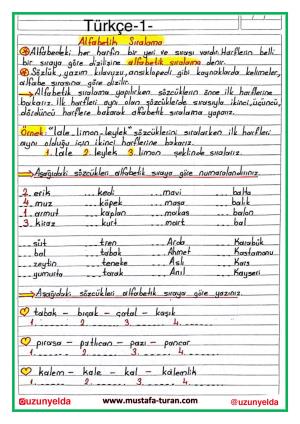 Türkçe-1-
Alfabetik Sıralama
Alfabedeki her harfin bir yeri ve sırası vardır. Harflerin belli
bir sıraya göre dizilişine alfabetik sıralama denir.
Sözlük, yazım kılavuzu, ansiklopedi gibi kaynaklarda kelimeler,
alfabe sırasına göre dizilir.
Alfabetik sıralama yapılırken sözcüklerin önce ilk harflerine
bakarız. İlk harfleri aynı olan sözcüklerde sırasıyla ikinci, üçüncü,
dördüncü harflere bakarak alfabetik sıralama yaparız.
Örnek: "lale, limon, leylek" sözcüklerini sıralarken ilk harfleri
aynı olduğu için ikinci harflerine bakarız.
1. lale 2. leylek 3. limon şeklinde sıralarız.
Aşağıdaki sözcükleri alfabetik sıraya göre numaralandırınız.
2. erik ... kedi ... mavi ... balta
4. muz ... köpek ... maşa ... balık
1. armut ... kaplan ... makas ... balon
3. kiraz ... kurt ... mart ... bal
... süt ... tren ... Arda ... Karabük
... bal ... tabak ... Ahmet ... Kastamonu
... zeytin ... teneke ... Aslı ... Kars
... yumurta ... tarak ... Anıl ... Kayseri
Aşağıdaki sözcükleri alfabetik sıraya göre yazınız.
tabak - bıçak - çatal - kaşık
1. ........ 2. ........ 3. ........ 4. ........
pırasa - patlıcan - pazı - pancar
1. ........ 2. ........ 3. ........ 4. ........
kalem - kale - kal - kalemlik
1. ........ 2. ........ 3. ........ 4. ........
@uzunyelda www.mustafa-turan.com @uzunyelda